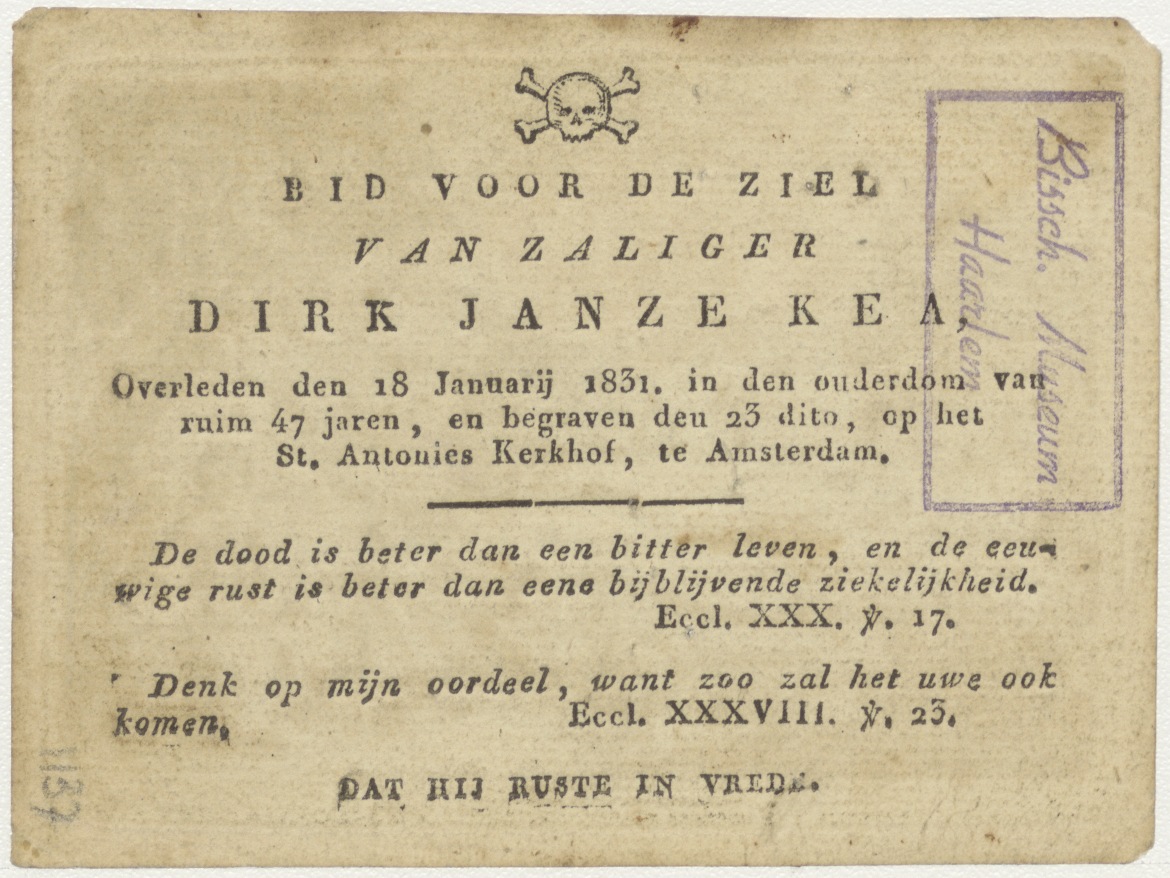 BID VOOR DE ZIEL
VAN ZALIGER
DIRK JANZE KEA,
Overleden den 18 Januarij 1831. in den ouderdom van
ruim 47 jaren, en begraven deu 23 dito, op het
St. Antonies Kerkhof, te Amsterdam.
De dood is beter dan een bitter leven, en de eeu-
wige rust is beter dan eene bijblijvende ziekelijkheid.
Eccl. XXX. ℣. 17.
Denk op mijn oordeel, want zoo zal het uwe ook
komen. Eccl. XXXVIII. ℣. 23.
DAT HIJ RUSTE IN VREDE.
Bissch. Museum
Haarlem
1137